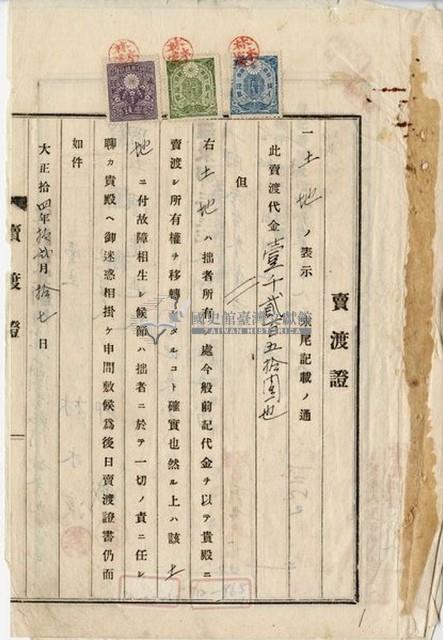 賣渡證
一土地ノ表示 末尾記載ノ通
此賣渡代金壹千貳百五拾圓也
但
右土地ハ拙者所有ノ處今般前記代金ヲ以テ貴殿ニ
賣渡シ所有權ヲ移轉シタルコト確實也然ル上ハ該土
地ニ付故障相生シ候節ハ拙者ニ於テ一切ノ責ニ任シ
聊カ貴殿ヘ御迷惑相掛ケ申間敷候爲後日賣渡證書仍而
如件
大正拾四年拾貳月拾七日
賣渡證
國史館臺灣文獻館
TAIWAN HISTORICA